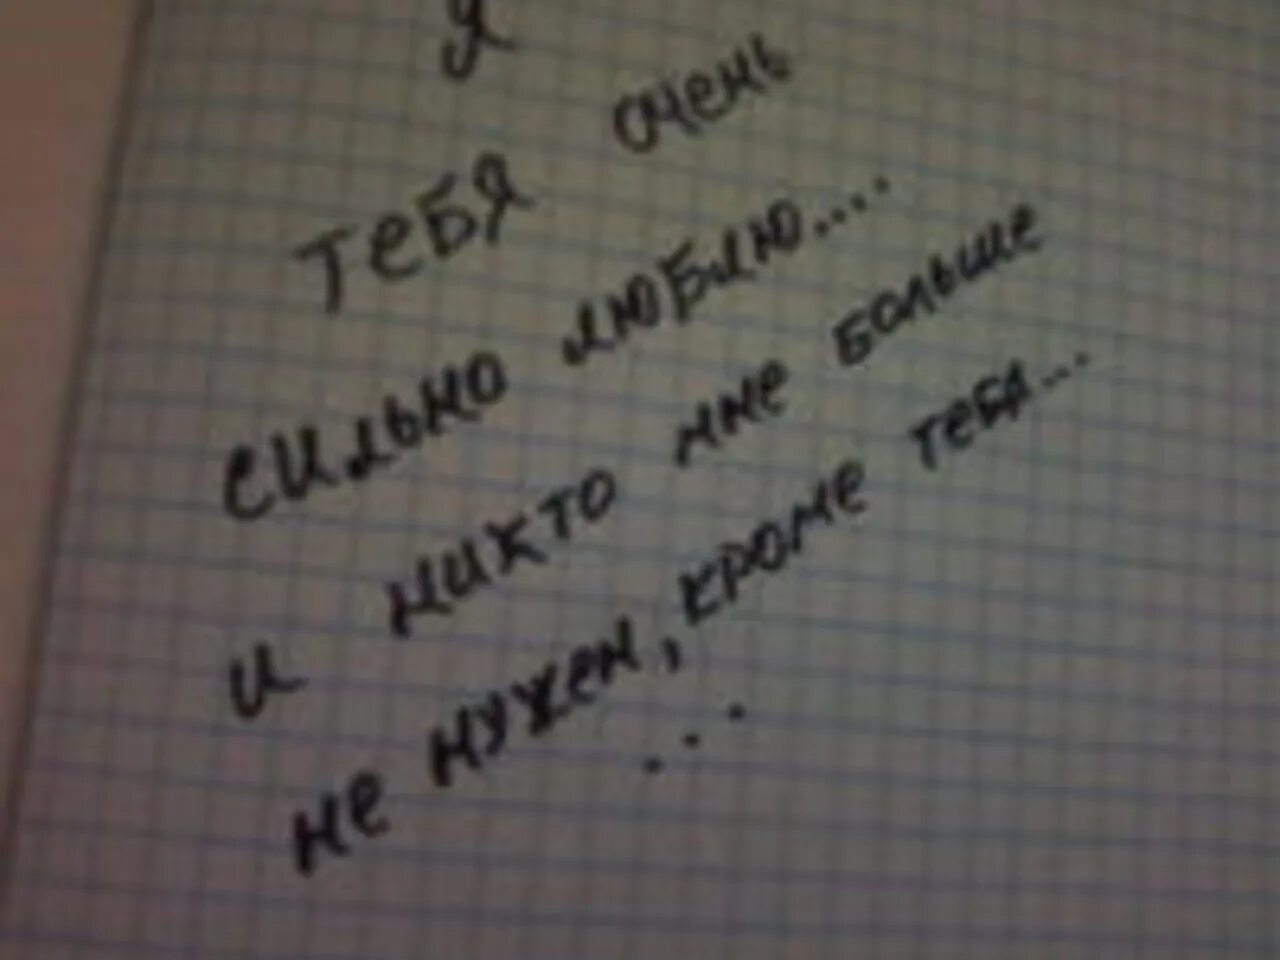 я
тебя очень
сильно люблю....
и никто мне больше
не нужен, кроме тебя...
...